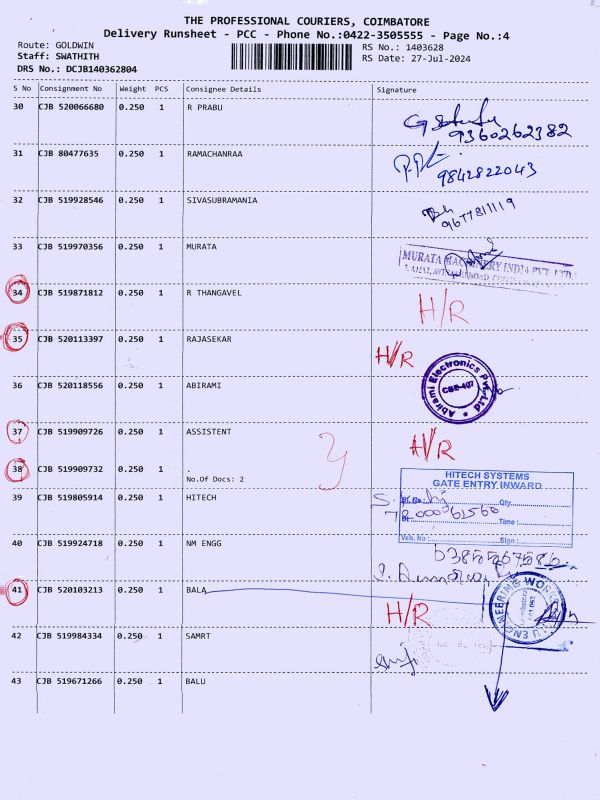 THE PROFESSIONAL COURIERS, COIMBATORE
Delivery Runsheet - PCC - Phone No.:0422-3505555 - Page No.:4
Route: GOLDWIN
Staff: SWATHITH
DRS No.: DCJB140362804
RS No.: 1403628
RS Date: 27-Jul-2024
S No Consignment No Weight PCS Consignee Details Signature
30 CJB 520066680 0.250 1 R PRABU
9360262382
31 CJB 80477635 0.250 1 RAMACHANRAA
9842822043
32 CJB 519928546 0.250 1 SIVASUBRAMANIA
9677811119
33 CJB 519970356 0.250 1 MURATA
MURATA MACHINERY INDIA PVT. LTD.
34 CJB 519871812 0.250 1 R THANGAVEL H/R
35 CJB 520113397 0.250 1 RAJASEKAR H/R
36 CJB 520118556 0.250 1 ABIRAMI
Abirami Electronics Pvt. Ltd
CBE-407
37 CJB 519909726 0.250 1 ASSISTENT H/R
38 CJB 519909732 0.250 1 .
No.Of Docs: 2
HITECH SYSTEMS
GATE ENTRY INWARD
39 CJB 519805914 0.250 1 HITECH
Qty
Time :
Veh. No : Sign :
40 CJB 519924718 0.250 1 NM ENGG
41 CJB 520103213 0.250 1 BALA H/R
42 CJB 519984334 0.250 1 SAMRT
43 CJB 519671266 0.250 1 BALU